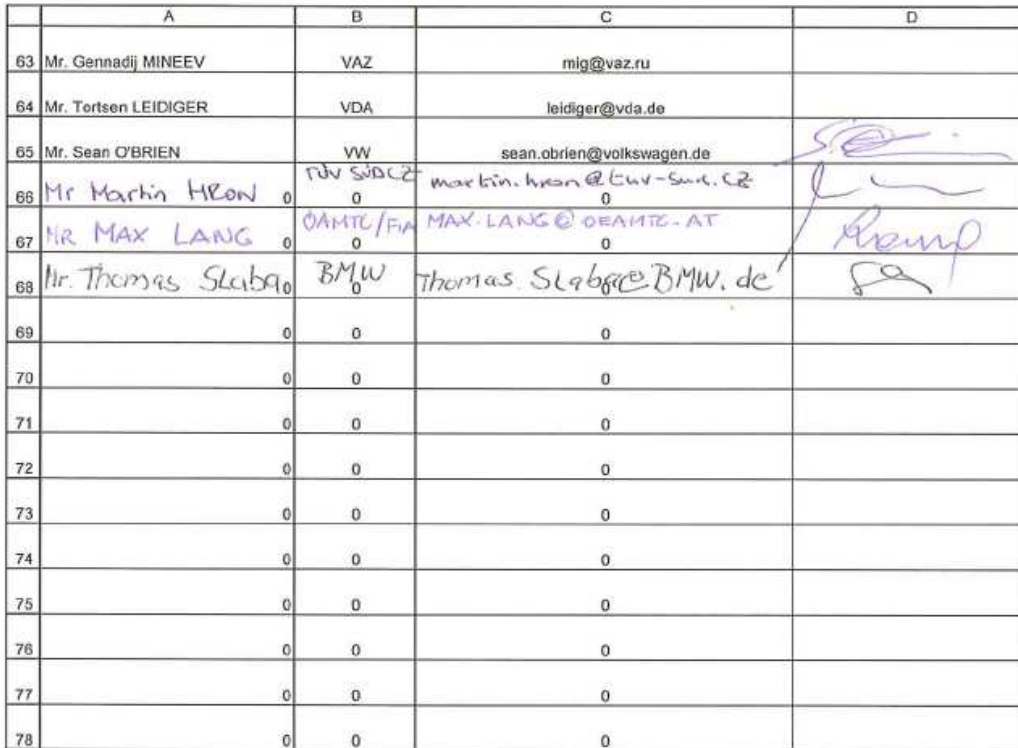 A B C D
63 Mr. Gennadij MINEEV VAZ mig@vaz.ru
64 Mr. Tortsen LEIDIGER VDA leidiger@vda.de
65 Mr. Sean O'BRIEN VW sean.obrien@volkswagen.de
66 Mr Martin HRON 0 TÜV SÜD CZ 0 martin.hron@tuv-sud.cz 0
67 MR MAX LANG 0 ÖAMTC/FIA 0 MAX.LANG@OEAMTC.AT 0
68 Mr. Thomas Slaba 0 BMW 0 Thomas.Slaba@BMW.de 0
69 0 0 0
70 0 0 0
71 0 0 0
72 0 0 0
73 0 0 0
74 0 0 0
75 0 0 0
76 0 0 0
77 0 0 0
78 0 0 0